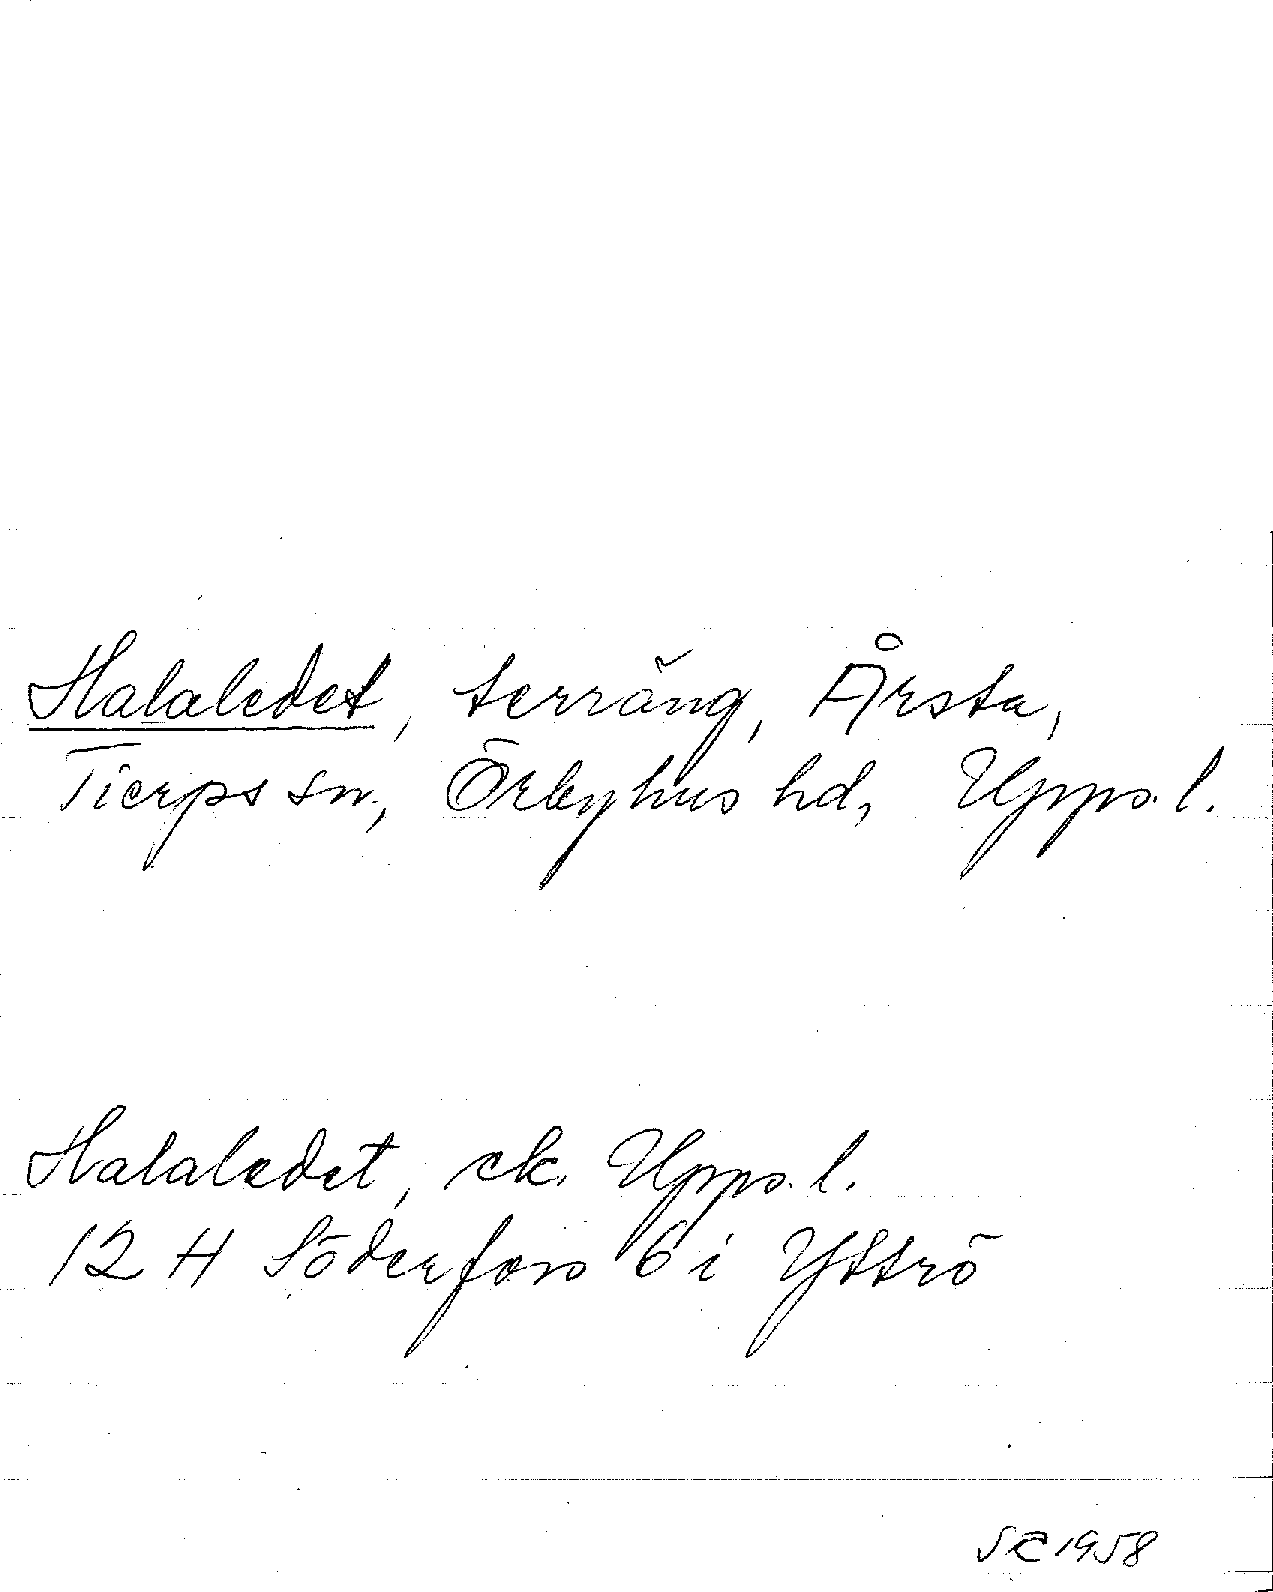 Halaledet, terräng, Årsta,
Tierps sn, Örbyhus hd, Upps. l.
Halaledet, ek. Upps. l.
12 H Söderfors 6 i Yttrö
1958